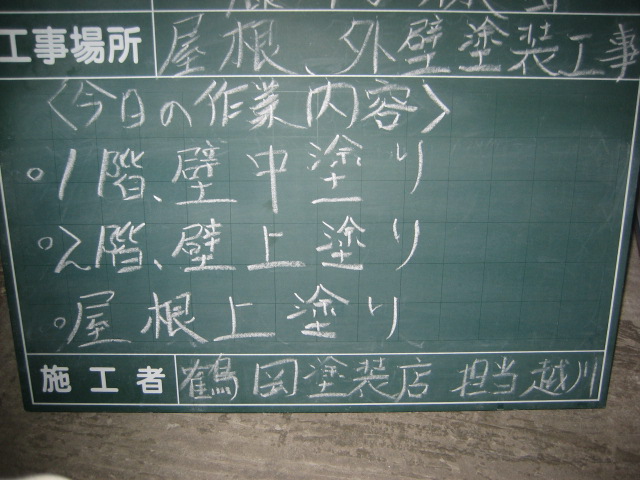 工事場所 屋根、外壁塗装工事
〈今日の作業内容〉
○1階、壁中塗り
○2階、壁上塗り
○屋根上塗り
施工者 鶴岡塗装店 担当越川